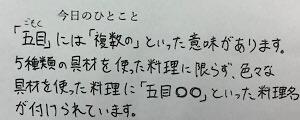 今日のひとこと
ごもく
「五目」には「複数の」といった意味があります。
5種類の具材を使った料理に限らず、色々な
具材を使った料理に「五目〇〇」といった料理名
が付けられています。